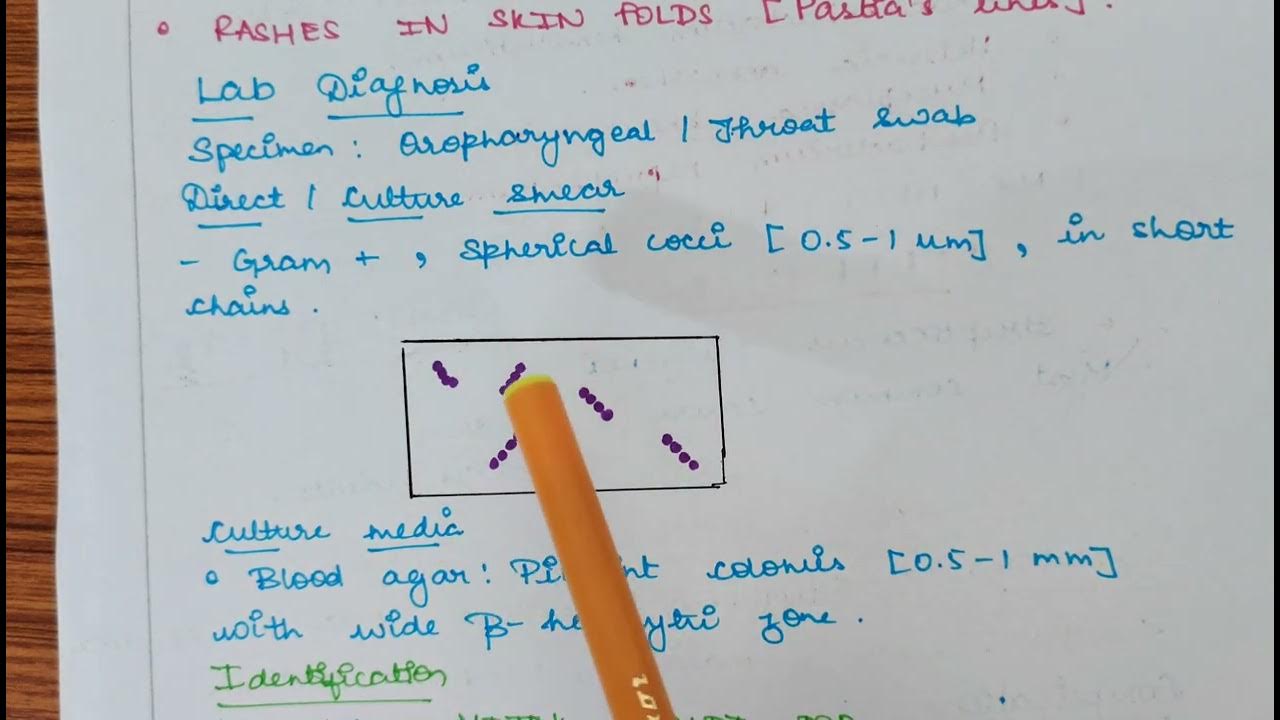 • RASHES IN SKIN FOLDS [Pastia's lines].
Lab Diagnosis
Specimen: Oropharyngeal / Throat swab
Direct / Culture smear
- Gram +, spherical cocci [0.5-1 um], in short
chains.
Culture media
• Blood agar: colonies [0.5-1 mm]
with wide β- zone.
Identification